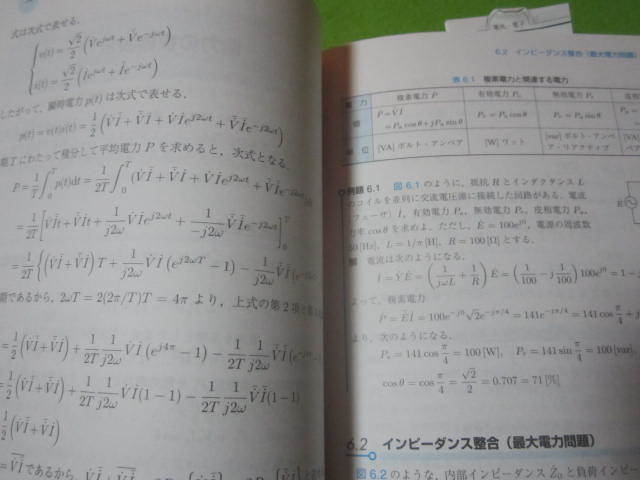 式は次式で表せる.
v(t) = √2/2 (V̇e^{jωt} + V̇̄e^{-jωt})
i(t) = √2/2 (İe^{jωt} + İ̄e^{-jωt})
したがって, 瞬時電力 p(t) は次式で表せる.
p(t) = v(t)i(t) = 1/2 (V̇İ̄ + V̇̄İ + V̇İe^{j2ωt} + V̇̄İ̄e^{-j2ωt})
にわたって積分して平均電力 P を求めると, 次式となる.
P = 1/T ∫_0^T p(t)dt = 1/2T ∫_0^T (V̇İ̄ + V̇̄İ + V̇İe^{j2ωt} + V̇̄İ̄e^{-j2ωt})
= 1/2T [V̇İ̄t + V̇̄İt + 1/j2ω V̇İe^{j2ωt} + 1/-j2ω V̇̄İ̄e^{-j2ωt}]_0^T
= 1/2T {(V̇İ̄ + V̇̄İ)T + 1/j2ω V̇İ(e^{j2ωT} − 1) − 1/j2ω V̇̄İ̄
であるから, 2ωT = 2(2π/T)T = 4π より, 上式の第 2 項と
= 1/2 (V̇İ̄ + V̇̄İ) + 1/2T 1/j2ω V̇İ(e^{j4π} − 1) − 1/2T 1/j2ω V̇̄İ̄
= 1/2 (V̇İ̄ + V̇̄İ) + 1/2T 1/j2ω V̇İ(1−1) − 1/2T 1/j2ω V̇̄İ̄(1−1)
1/2 (V̇İ̄ + V̇̄İ)
であるから,
電気, 電子
6.2 インピーダンス整合（最大電力問題）
表 6.1 複素電力と関連する電力
電 力 複素電力 Ṗ 有効電力 Pₐ 無効電力 Pᵣ
Ṗ = V̄̇İ
= Pₐ cos θ + jPₐ sin θ Pₑ = Pₐ cos θ Pᵣ = Pₐ sin θ
単 位 [VA] ボルト・アンペア [W] ワット [var] ボルト・アンペア・リアクティブ [VA]
例題 6.1 図 6.1 のように, 抵抗 R とインダクタンス L
のコイルを並列に交流電圧源に接続した回路がある. 電流
(フェーザ) İ, 有効電力 Pₑ, 無効電力 Pᵣ, 皮相電力 Pₐ,
力率 cos θ を求めよ. ただし, Ė = 100e^{j0}, 電源の周波数
50 [Hz], L = 1/π [H], R = 100 [Ω] とする.
解 電流は次のようになる.
İ = ẎĖ = (1/jωL + 1/R) Ė = (1/100 − j 1/100) 100e^{j0} = 1 −
よって, 複素電力
Ṗ = Ē̇İ = 100e^{-j0} √2e^{-jπ/4} = 141e^{-jπ/4} = 141 cos π/4 + j
より, 次のようになる.
Pₑ = 141 cos π/4 = 100 [W], Pᵣ = 141 sin π/4 = 100 [var],
cos θ = cos π/4 = √2/2 = 0.707 = 71 [%]
6.2 インピーダンス整合（最大電力問題）
図 6.2 のような, 内部インピーダンス Ż₀ と負荷インピー